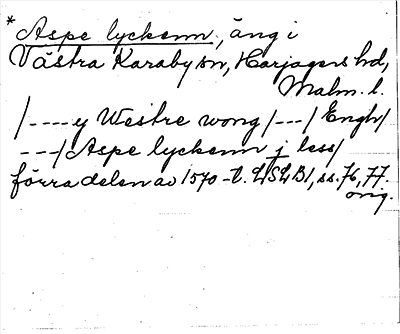 * Aspe lyckenn, äng i
Västra Karaby sn, Harjagers hd,
Malm. l.
/----y Westre wong /---/ Engh/
---/ Aspe lyckenn j less/
förra delen av 1570-t. LSLB1, ss. 76, 77.
orig.